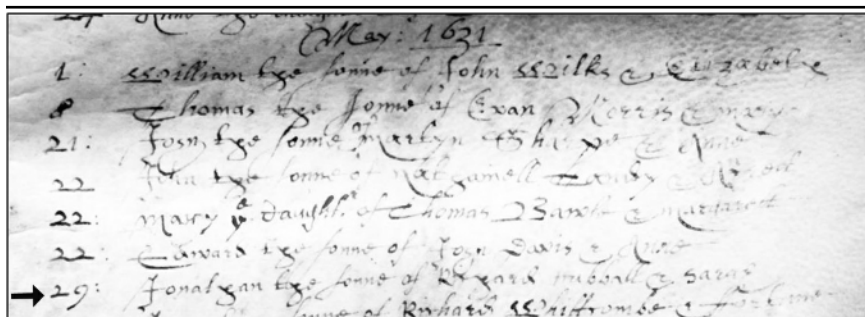 27 Anne the daugh
May: 1631
1: William the sonne of John Wilks & Elizabeth
8 Thomas the sonne of Evan Morris & mary
21: John the sonne Martyn Sharpe & Anne
22 John the sonne of Nathaniell &
22: Mary ye daught. of Thomas & margarett
22: Edward the sonne of John Davis & Anne
29: Jonathan the sonne of Richard hubball & Sarah
sonne of Richard Whiffcombe &